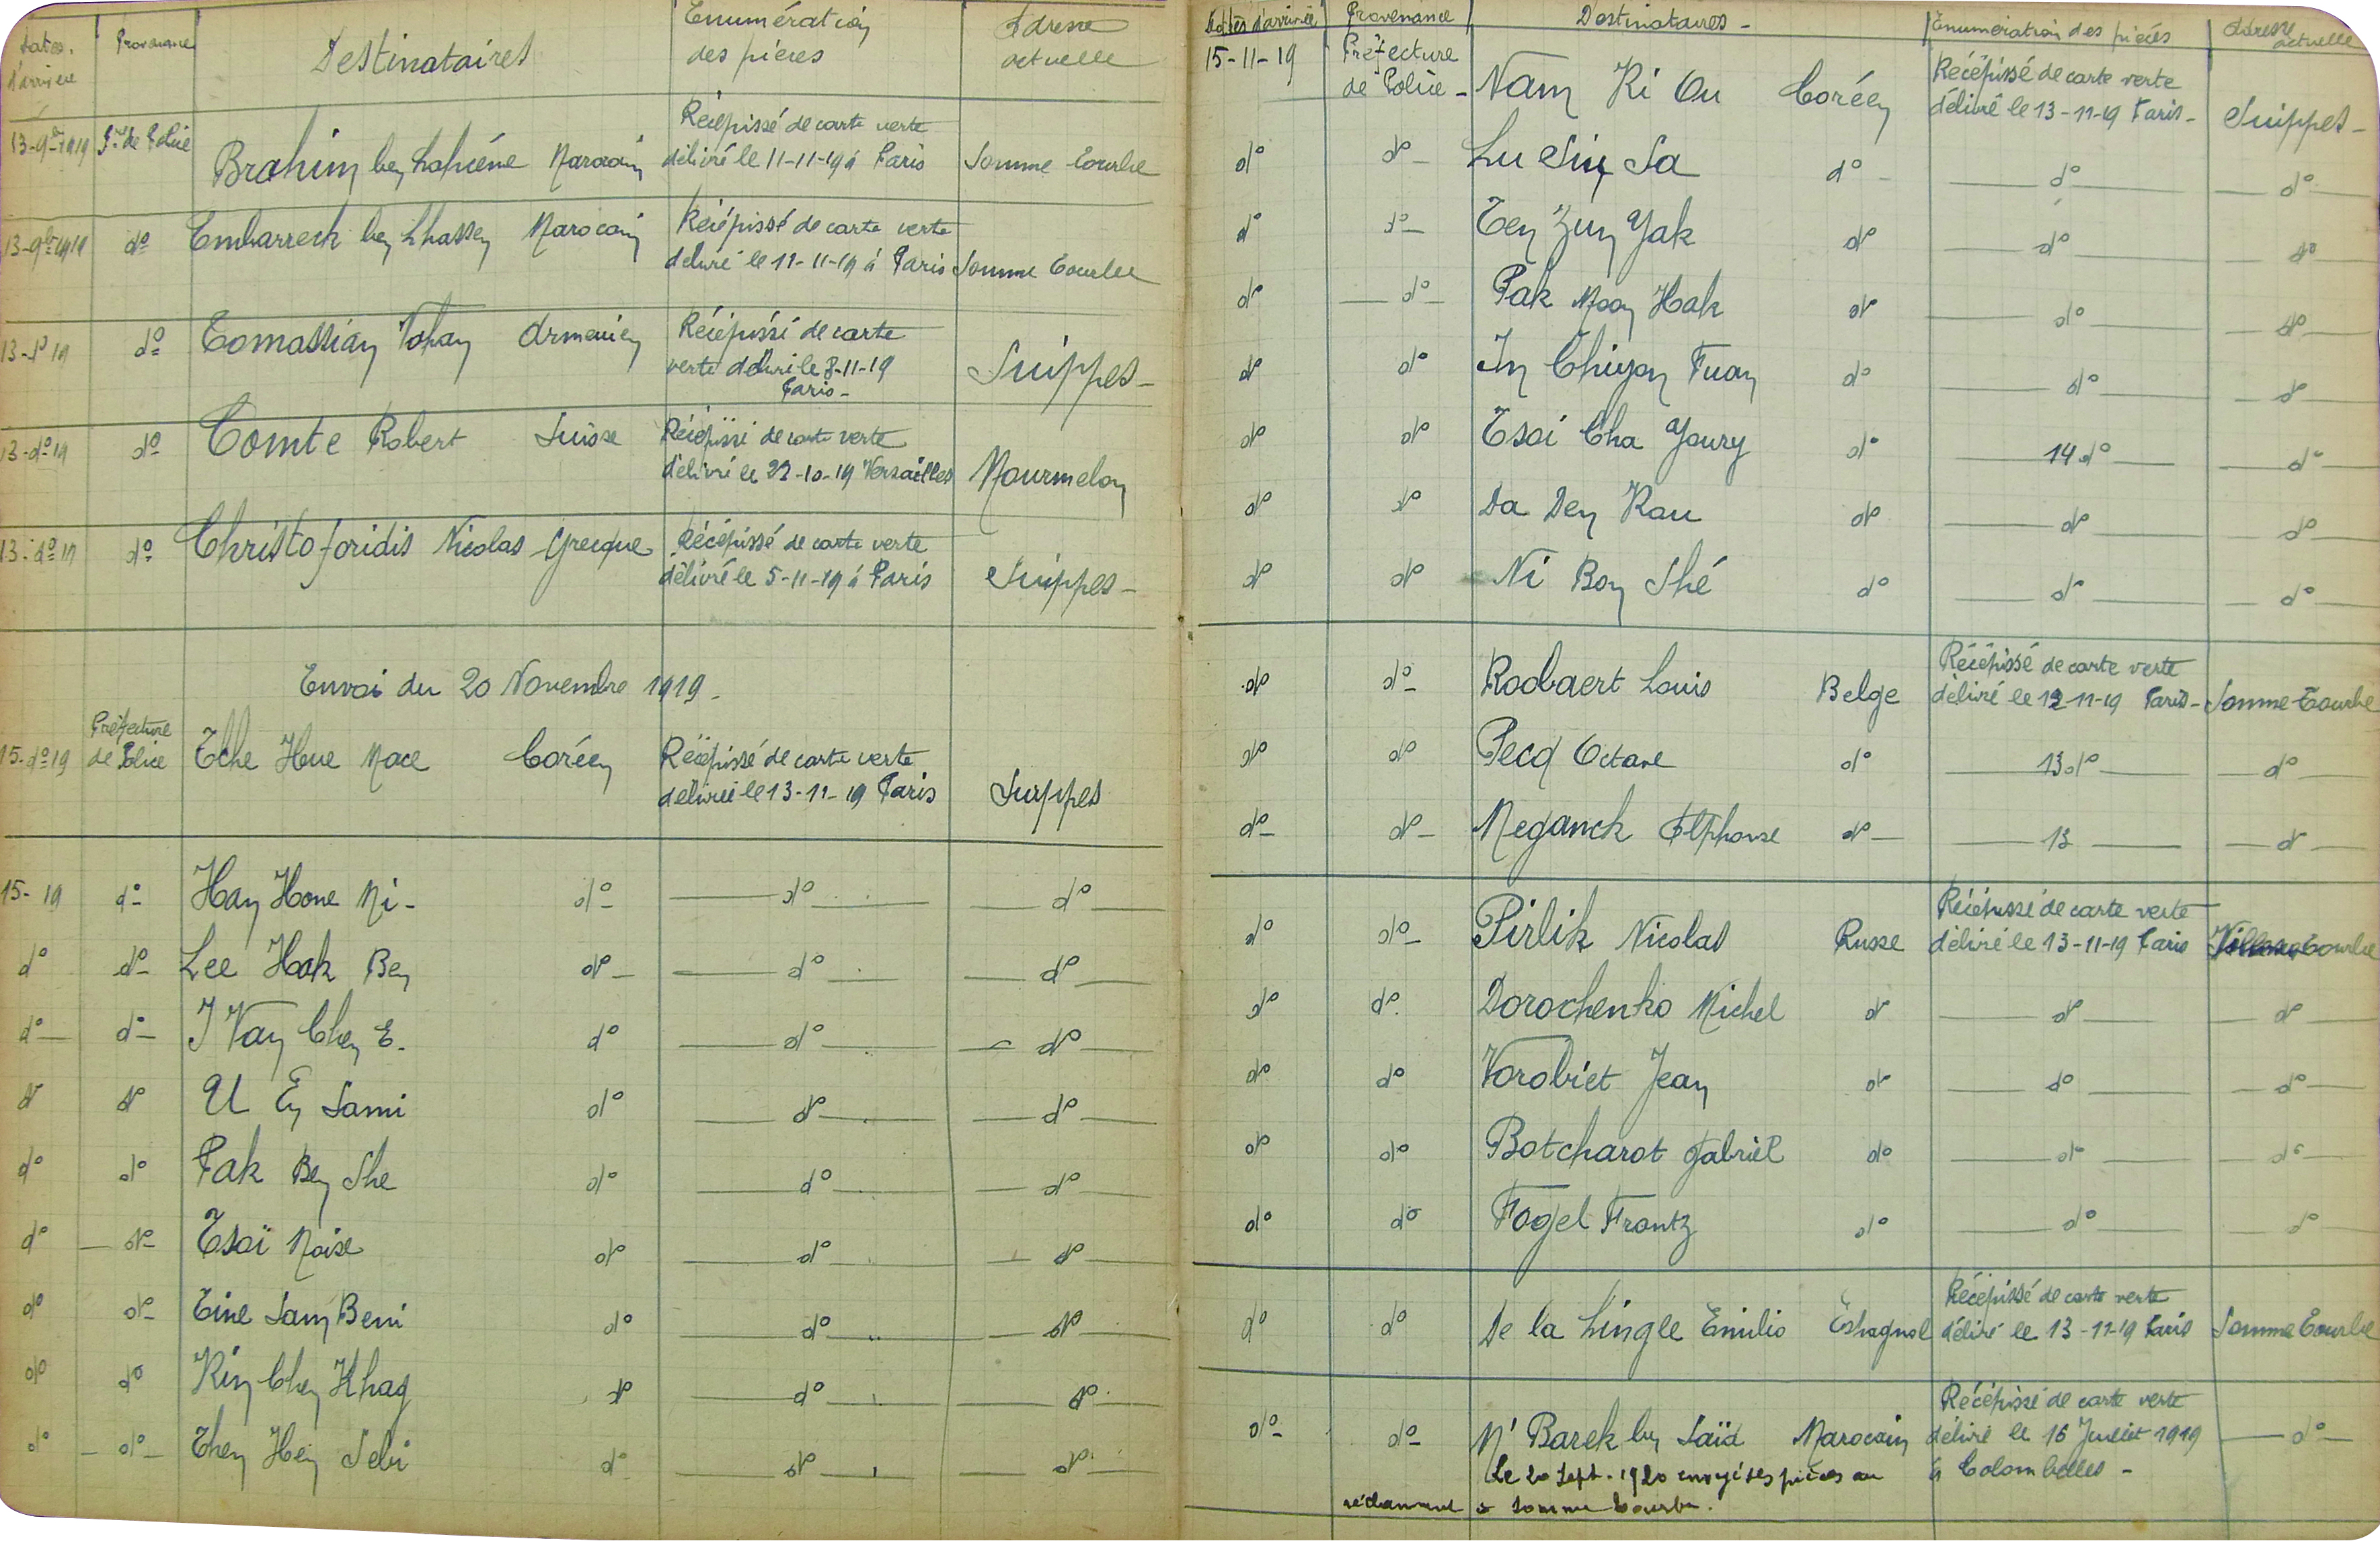 Dates d'arrivée Provenance Destinataires Enumération des pièces Adresse actuelle
13-9bre-1919 Pre de Police Brahim ben Lahcéne Marocain Récépissé de carte verte délivré le 11-11-19 à Paris Somme Tourbe
13-9bre-1919 do Embarreck ben Lhassen Marocain Récépissé de carte verte délivré le 11-11-19 à Paris Somme Tourbe
13-do 19 do Tomassian Vohan Armenien Récépissé de carte verte délivré le 8-11-19 Paris - Suippes -
13-do 19 do Comte Robert Suisse Récépissé de carte verte délivré le 22-10-19 Versailles Mourmelon
13-do 19 do Christoforidis Nicolas Grecque Récépissé de carte verte délivré le 5-11-19 à Paris Suippes -
Envoi du 20 Novembre 1919 -
15-do 19 Préfecture de Police Tche Hue Mace Coréen Récépissé de carte verte délivrée le 13-11-19 Paris Suippes
15- 19 do Han Hone Mi - do do do
do do Lee Hak Ben do do do
do do I Van Chen E. do do do
do do U En Sami do do do
do do Pak Ben She do do do
do do Tsoï Moise do do do
do do Tine Sam Beni do do do
do do Kin Chen Khag do do do
do do Then Hen Sebi do do do
Dates d'arrivée Provenance Destinataires - Enumération des pièces Adresse actuelle
15-11-19 Préfecture de Police - Nam Ki Ou Coréen Récépissé de carte verte délivré le 13-11-19 Paris - Suippes -
do do Lu Sin Sa do do do
do do Ten Zun Yak do do do
do do Pak Moon Hak do do do
do do In Chiyon Fuan do do do
do do Tsoi Cha Youry do 14 do do
do do Da Den Kau do do do
do do Ni Bon Shé do do do
do do Roobaert Louis Belge Récépissé de carte verte délivré le 12-11-19 Paris - Somme-Tourbe
do do Pecq Octave do 13 do do
do do Meganck Alphonse do 13 do
do do Pirlik Nicolas Russe Récépissé de carte verte délivré le 13-11-19 Paris Tourbe
do do Dorochenko Michel do do do
do do Vorobiet Jean do do do
do do Botcharot Gabriel do do do
do do Fogel Frantz do do do
do do De la Lingle Emilio Espagnol Récépissé de carte verte délivré le 13-11-19 Paris Somme Tourbe
do do M'Barek ben Saïd Marocain Récépissé de carte verte délivré le 16 Juillet 1919 à Colombelles - do
Le 20 Sept. 1920 envoyé ses pièces au
réclamant à Somme Tourbe.